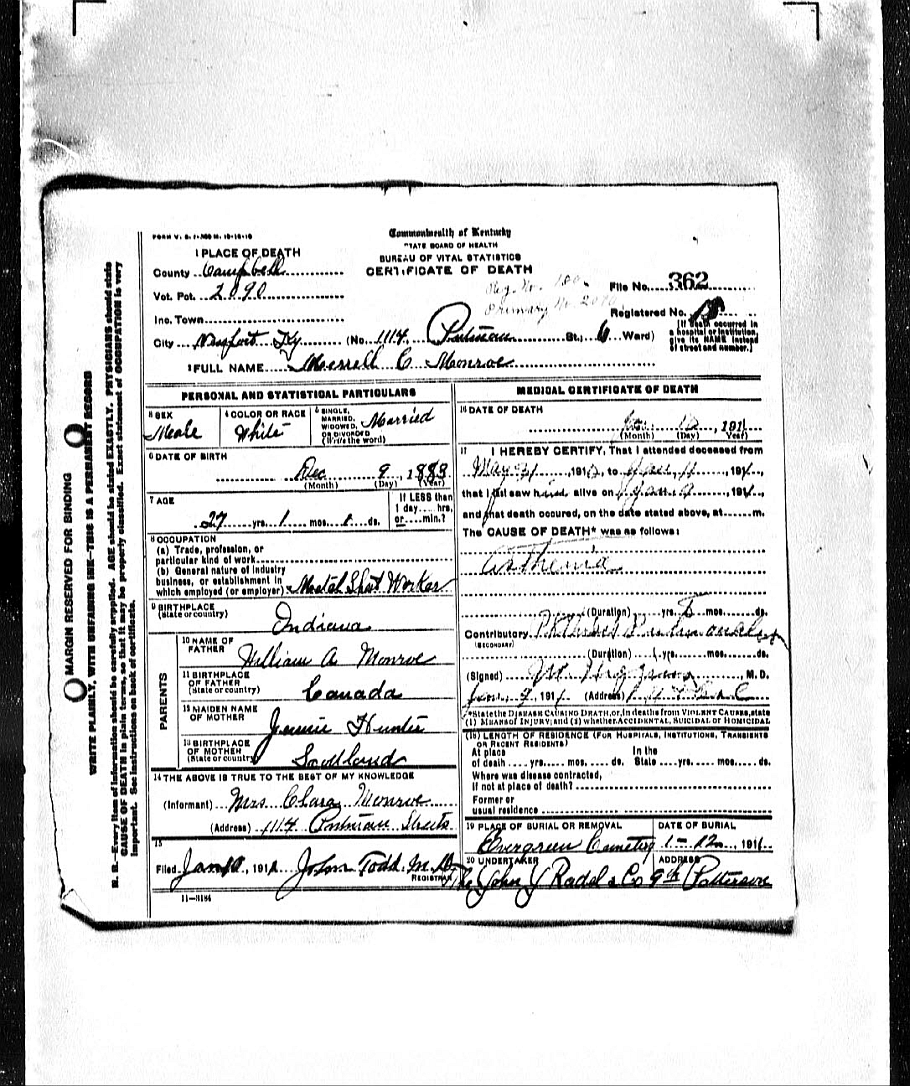 FORM V. S. 1
Commonwealth of Kentucky
STATE BOARD OF HEALTH
BUREAU OF VITAL STATISTICS
CERTIFICATE OF DEATH
1 PLACE OF DEATH
County Campbell
Vot. Pct. 2090
Inc. Town
City Newport Ky (No. 1114 Putnam St., 6 Ward)
File No. 362
Registered No. 18
[If death occurred in a hospital or institution, give its NAME instead of street and number.]
2 FULL NAME Merrell C Monroe
PERSONAL AND STATISTICAL PARTICULARS
3 SEX Male
4 COLOR OR RACE White
5 SINGLE, MARRIED, WIDOWED, OR DIVORCED (Write the word) Married
6 DATE OF BIRTH
Dec 9, 1883
(Month) (Day) (Year)
7 AGE
27 yrs. 1 mos. 1 ds.
If LESS than 1 day.... hrs. or.... min.?
8 OCCUPATION
(a) Trade, profession, or particular kind of work
(b) General nature of industry business, or establishment in which employed (or employer) Metal Worker
9 BIRTHPLACE
(State or country) Indiana
PARENTS
10 NAME OF FATHER William A Monroe
11 BIRTHPLACE OF FATHER (State or country) Canada
12 MAIDEN NAME OF MOTHER Jennie Hunter
13 BIRTHPLACE OF MOTHER (State or country) Scotland
14 THE ABOVE IS TRUE TO THE BEST OF MY KNOWLEDGE
(Informant) Mrs Clara Monroe
(Address) 1114 Putnam Street
15
Filed Jan 191 John Todd. M. D.
REGISTRAR
11-3184
MEDICAL CERTIFICATE OF DEATH
16 DATE OF DEATH
Jan 10, 1911
(Month) (Day) Year)
17 I HEREBY CERTIFY, That I attended deceased from
May 31, 191 to 191
that I last saw him alive on Jan 9, 191
and that death occured, on the date stated above, at m.
The CAUSE OF DEATH* was as follows:
Asthenia
(Duration) yrs. mos. ds.
Contributory Phthisis Pulmonalis
(SECONDARY)
(Duration) yrs. mos. ds.
(Signed) M. D.
191 (Address)
*State the DISEASE CAUSING DEATH, or, in deaths from VIOLENT CAUSES, state (1) MEANS of INJURY; and (2) whether ACCIDENTAL, SUICIDAL or HOMICIDAL
18) LENGTH OF RESIDENCE (FOR HOSPITALS, INSTITUTIONS, TRANSIENTS OR RECENT RESIDENTS)
At place of death yrs. mos. ds. In the State yrs. mos. ds.
Where was disease contracted,
if not at place of death?
Former or
usual residence
19 PLACE OF BURIAL OR REMOVAL Evergreen Cemetery
DATE OF BURIAL 1-12 1911
20 UNDERTAKER The John J Radel & Co
ADDRESS 9th Patterson
MARGIN RESERVED FOR BINDING
WRITE PLAINLY, WITH UNFADING INK—THIS IS A PERMANENT RECORD
N. B.—Every item of information should be carefully supplied. AGE should be stated EXACTLY. PHYSICIANS should state
CAUSE OF DEATH in plain terms, so that it may be properly classified. Exact statement of OCCUPATION is very
important. See instructions on back of certificate.